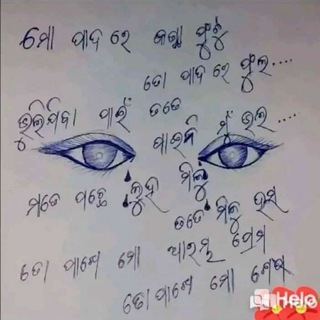 ମୋ ପାଦ ରେ କଣ୍ଟା ଫୁଟୁ
ତୋ ପାଦ ରେ ଫୁଲ....
ଭୁଲିଯିବା ପାଇଁ ତତେ
ପାଇନି ମୁଁ ଭଲ....
ମତେ ପଛେ ଲୁହ ମିଳୁ
ତତେ ମିଳୁ ହସ
ତୋ ପାଖେ ମୋ ଆରମ୍ଭ ପ୍ରେମ
ତୋ ପାଖେ ମୋ ଶେଷ
Helo